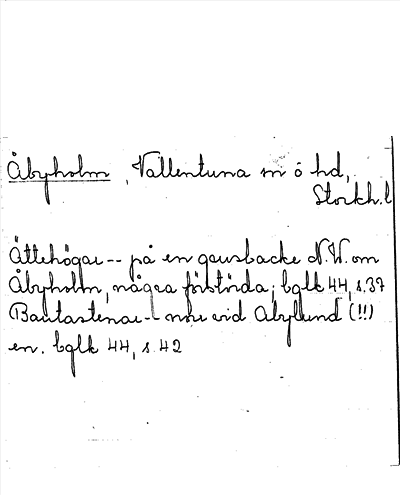 Åbyholm, Vallentuna sn ö hd,
Stockh. l
Ättehögar -- på en grusbacke N.V. om
Åbyholm, några förstörda; bglk 44, s. 37
Bautastenar - norr vid Åbylund (!!)
en. bglk 44, s 42